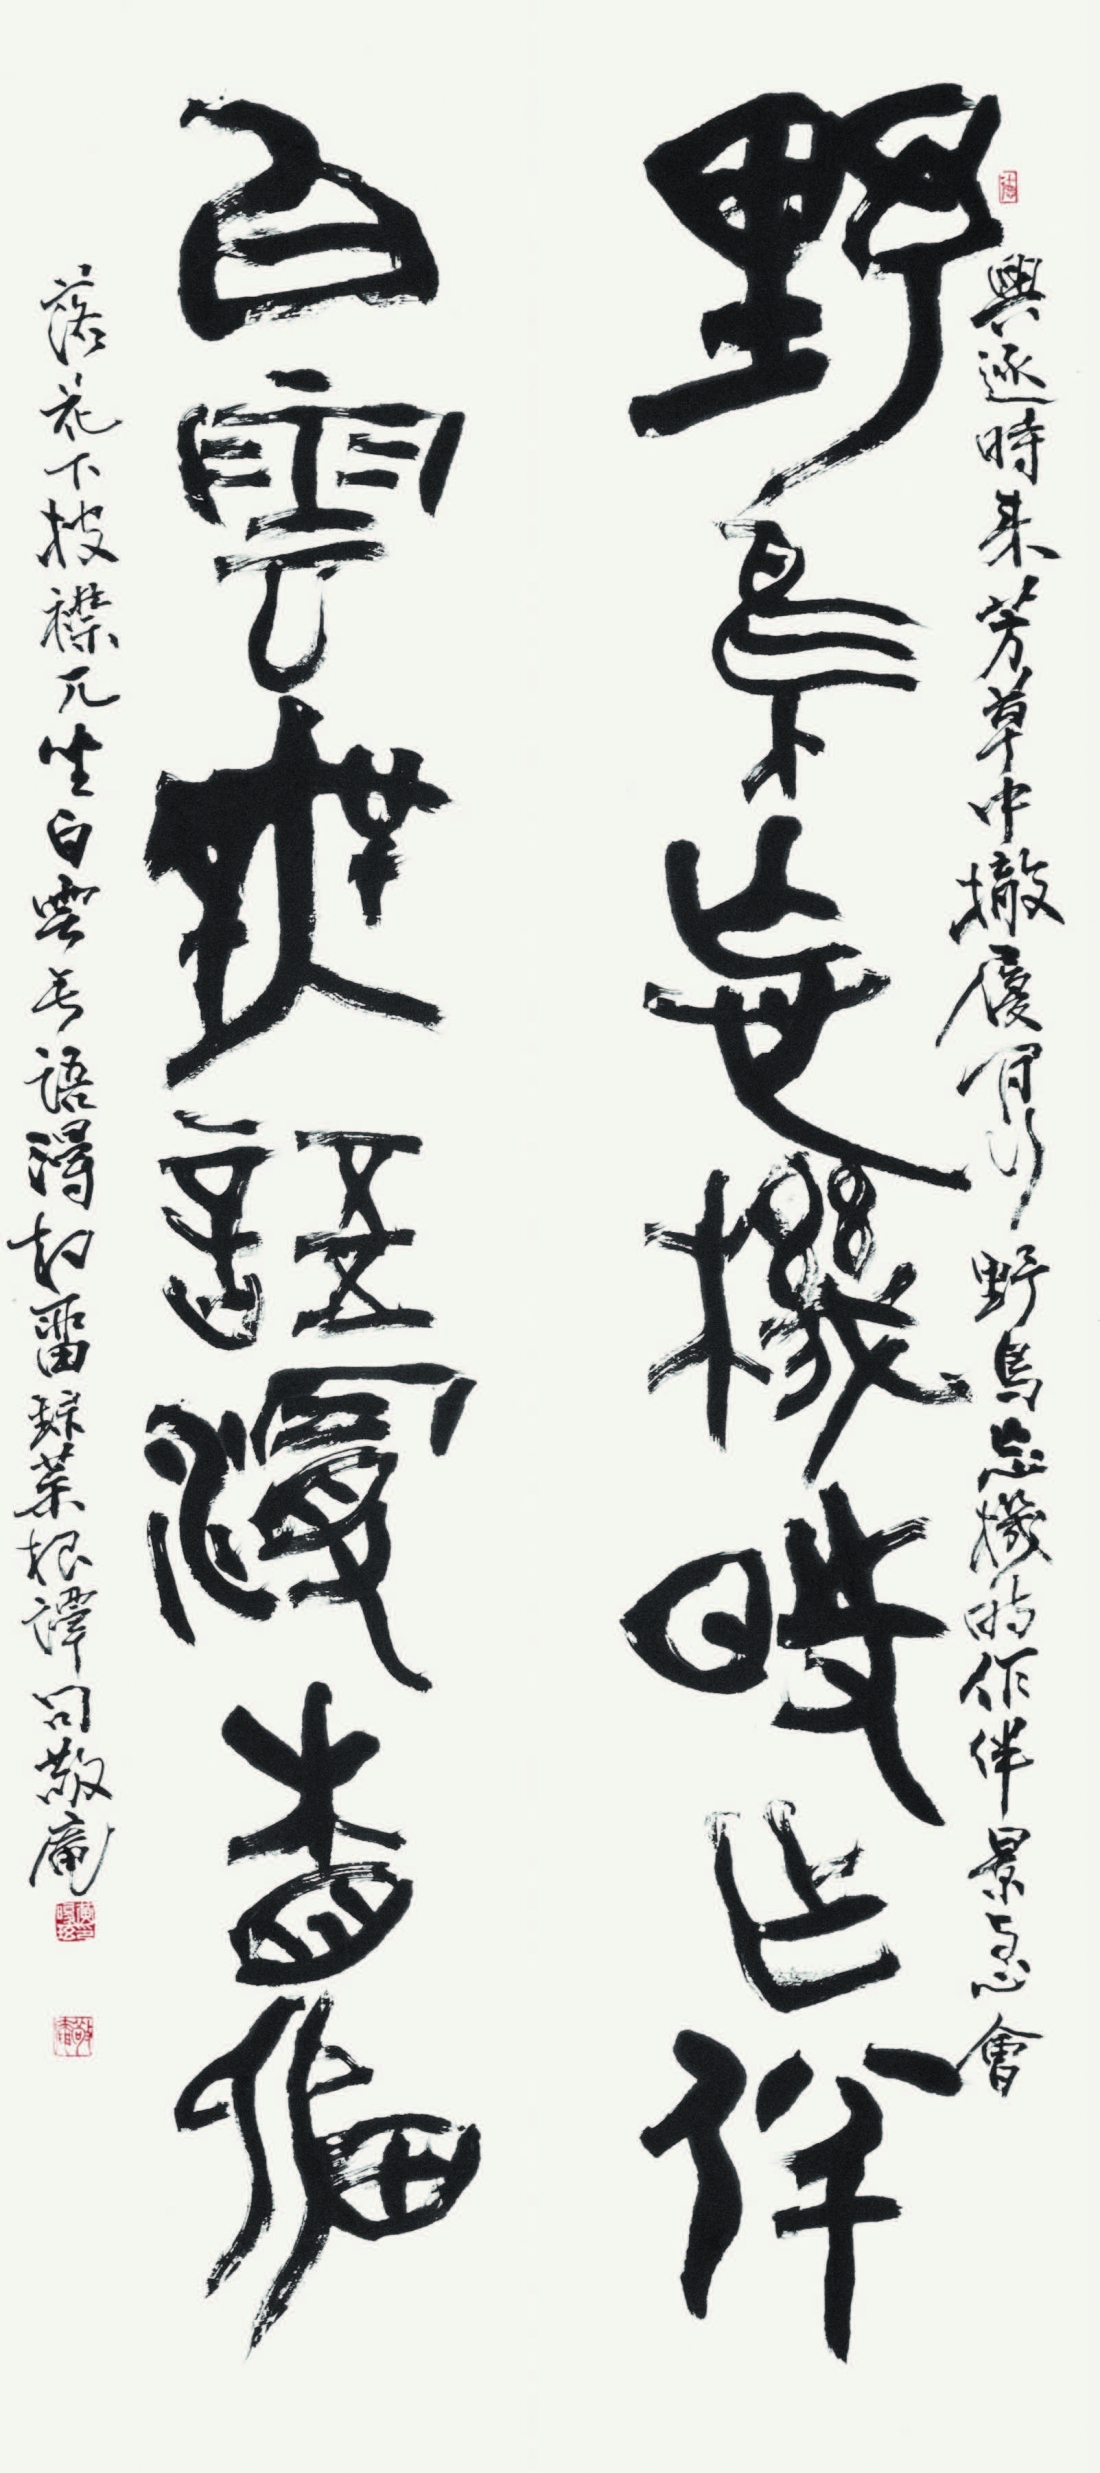 興逐時來芳草中撤履閒行野鳥忘機時作伴景與心會
野鳥忘機時作伴
白雲無語漫相留
落花下披襟兀坐白雲無語漫相留錄菜根譚句敬庵